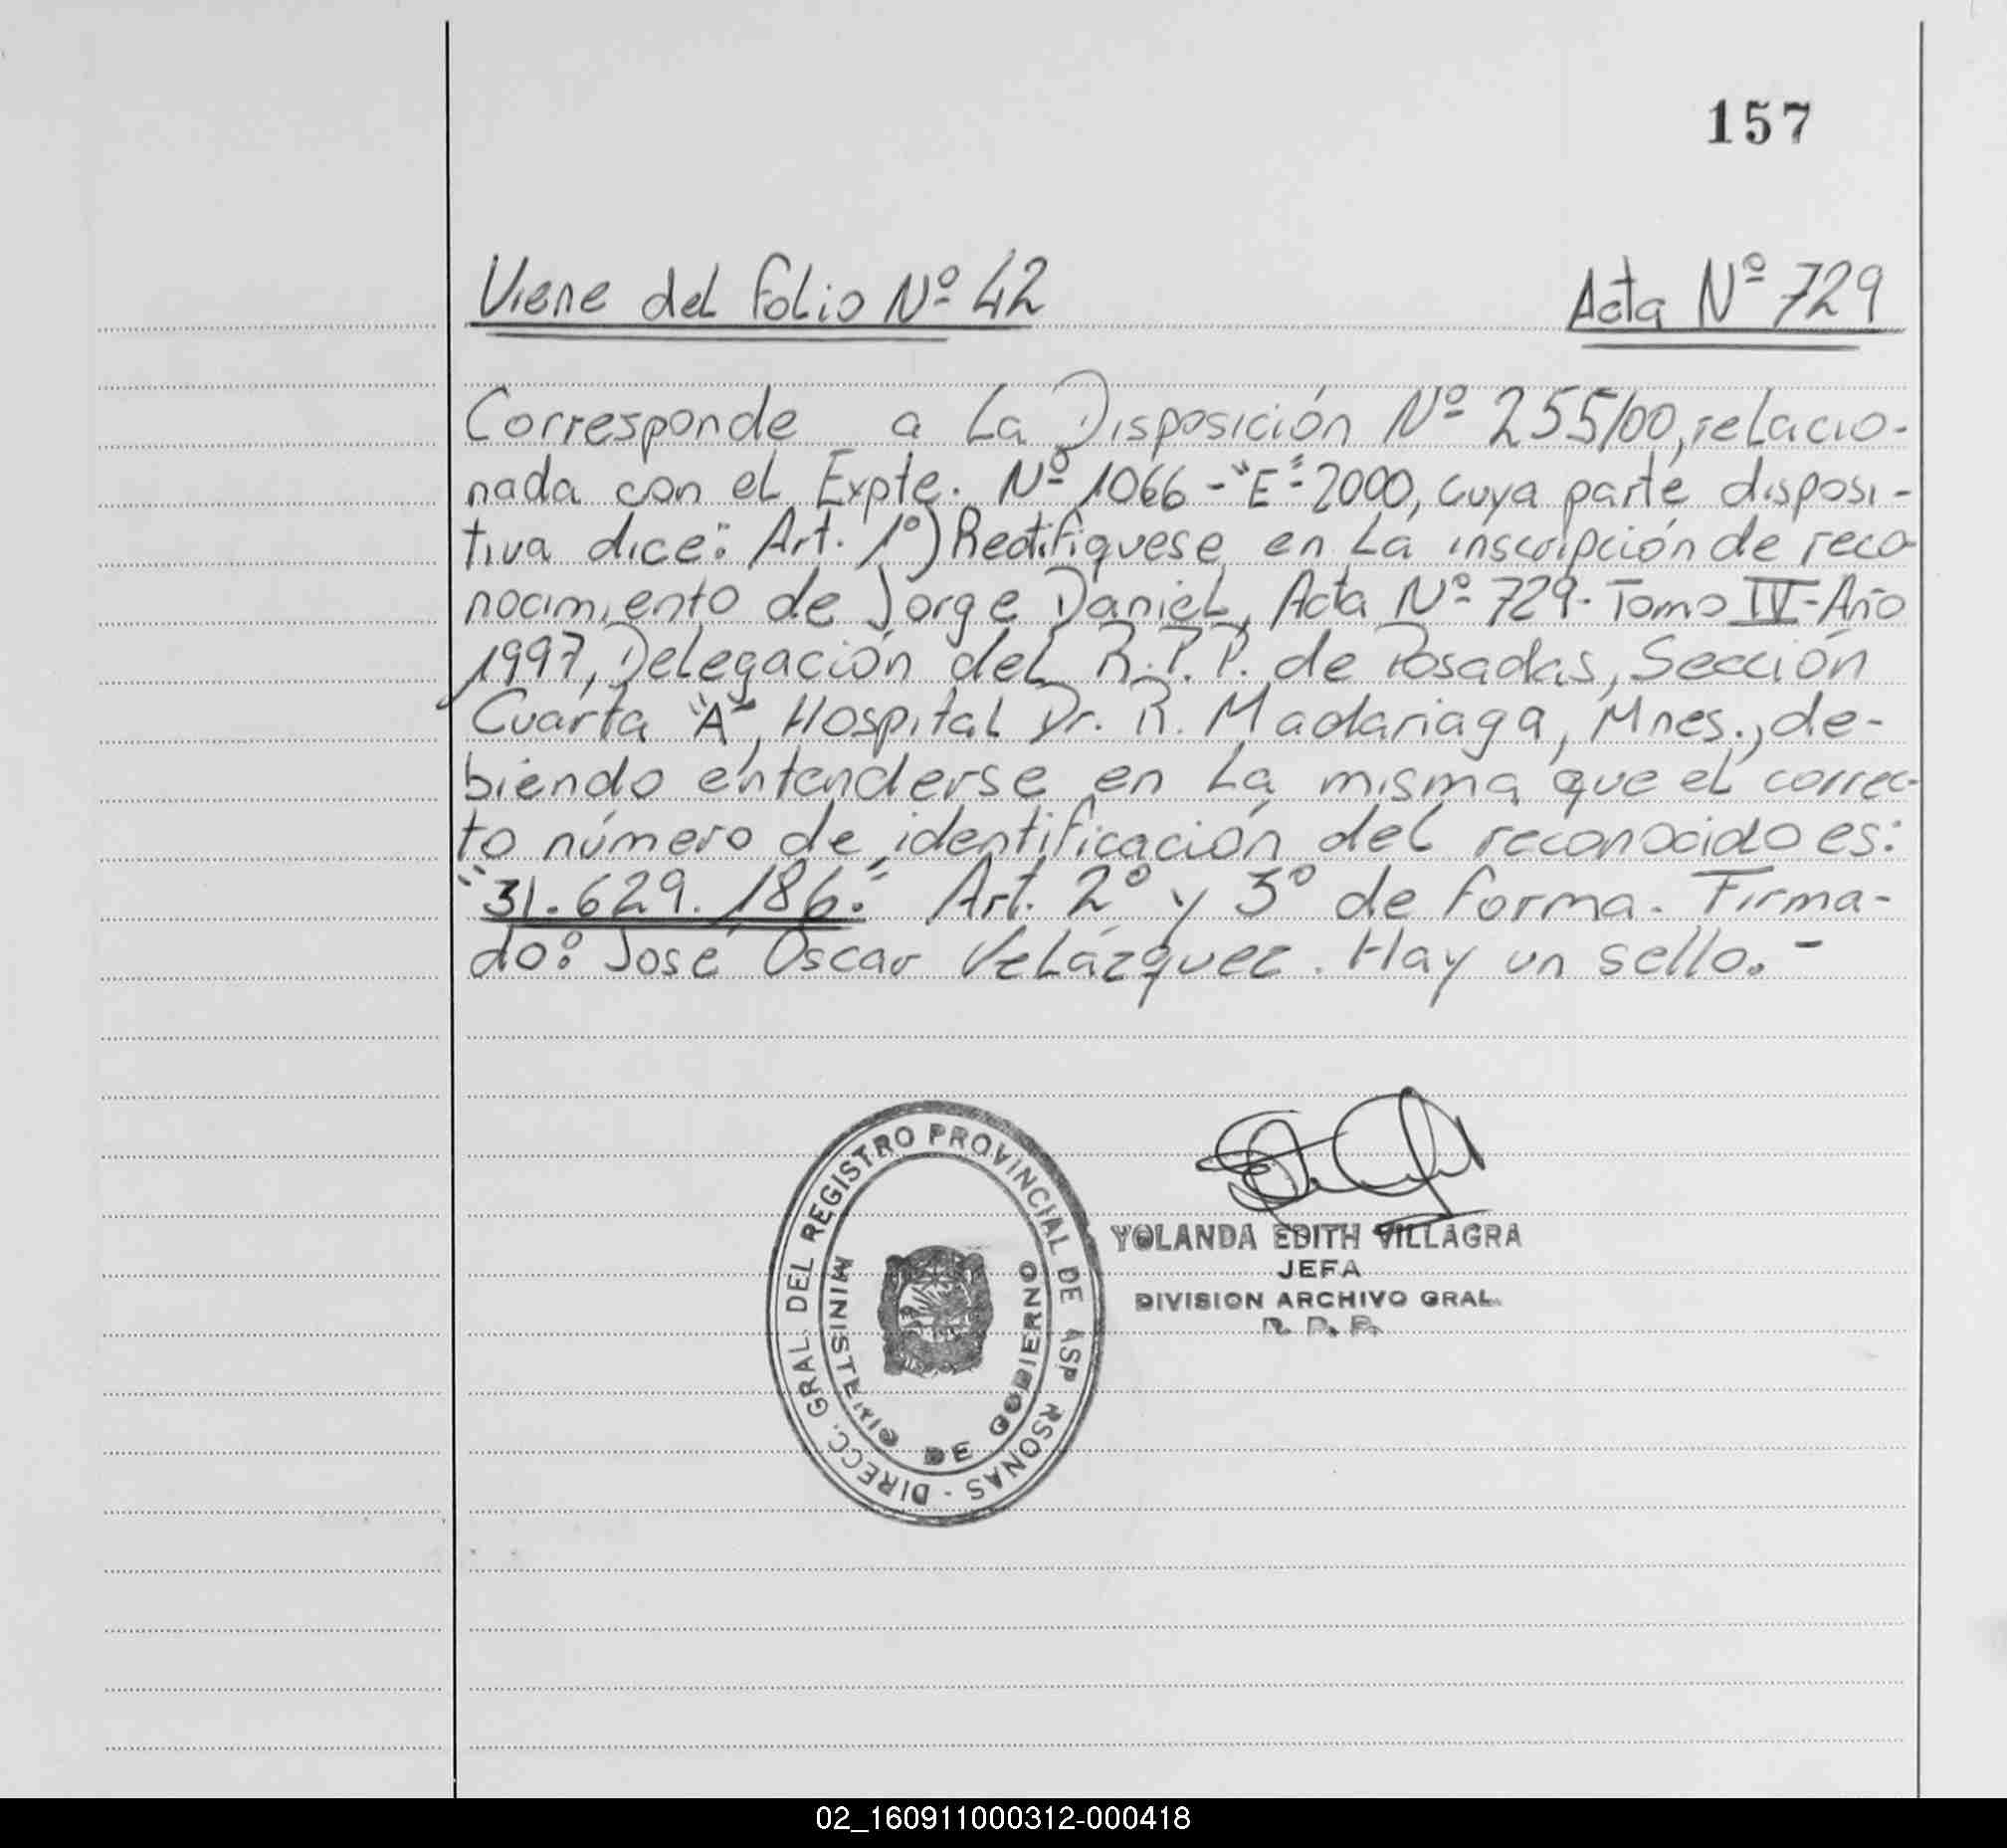 157
Viene del folio Nº 42 Acta Nº 729
Corresponde a La Disposición Nº 255/00, relacio-
nada con el Expte. Nº 1066-"E"-2000, cuya parte disposi-
tiva dice: Art. 1º) Rectifiquese en La inscripción de reco-
nocimiento de Jorge Daniel, Acta Nº 729- Tomo IV-Año
1997, Delegación del R.P.P. de Posadas, Sección
Cuarta "A", Hospital Dr. R. Madariaga, Mnes., de-
biendo entenderse en La misma que el correc-
to número de identificación del reconocido es:
"31.629.186." Art. 2º y 3º de forma. Firma-
do: José Oscar Velázquez. Hay un sello.-
DIRECC. GRAL. DEL REGISTRO PROVINCIAL DE
RSONAS -
MINISTERIO DE GOBIERNO
YOLANDA EDITH VILLAGRA
JEFA
DIVISION ARCHIVO GRAL.
R. P. P.
02_160911000312-000418